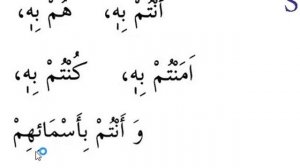 S
أَنْتُمْ بِهٖ، هَمْ بِهٖ،
اَمَنْتُمْ بِهٖ، كُنْتُمْ بِهٖ،
وَ أَنْتُمْ بِأَسْمَائِهِمْ